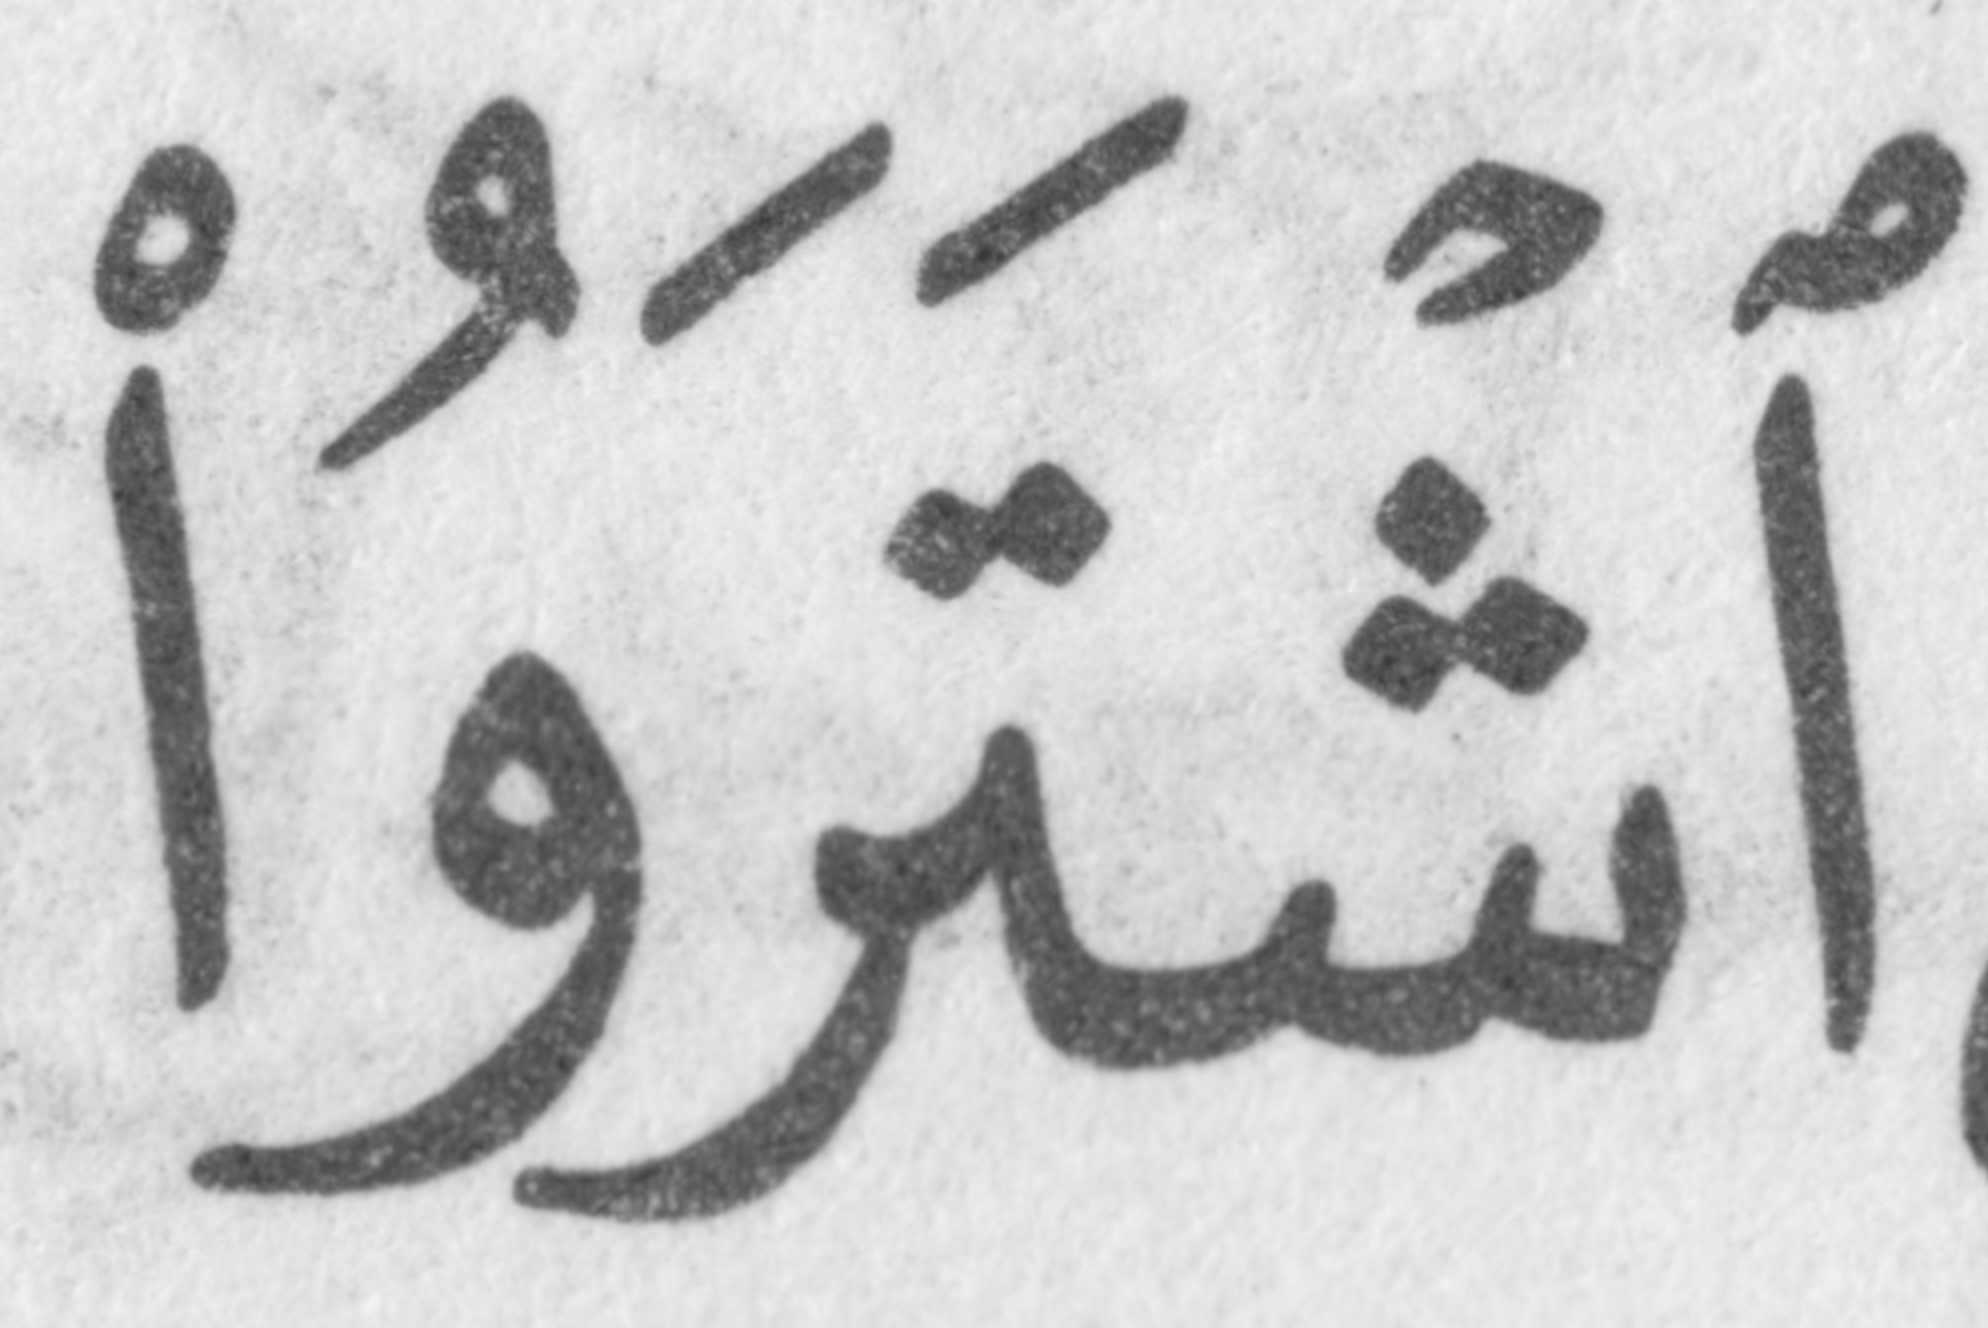 ٱشۡتَرَوُاْ